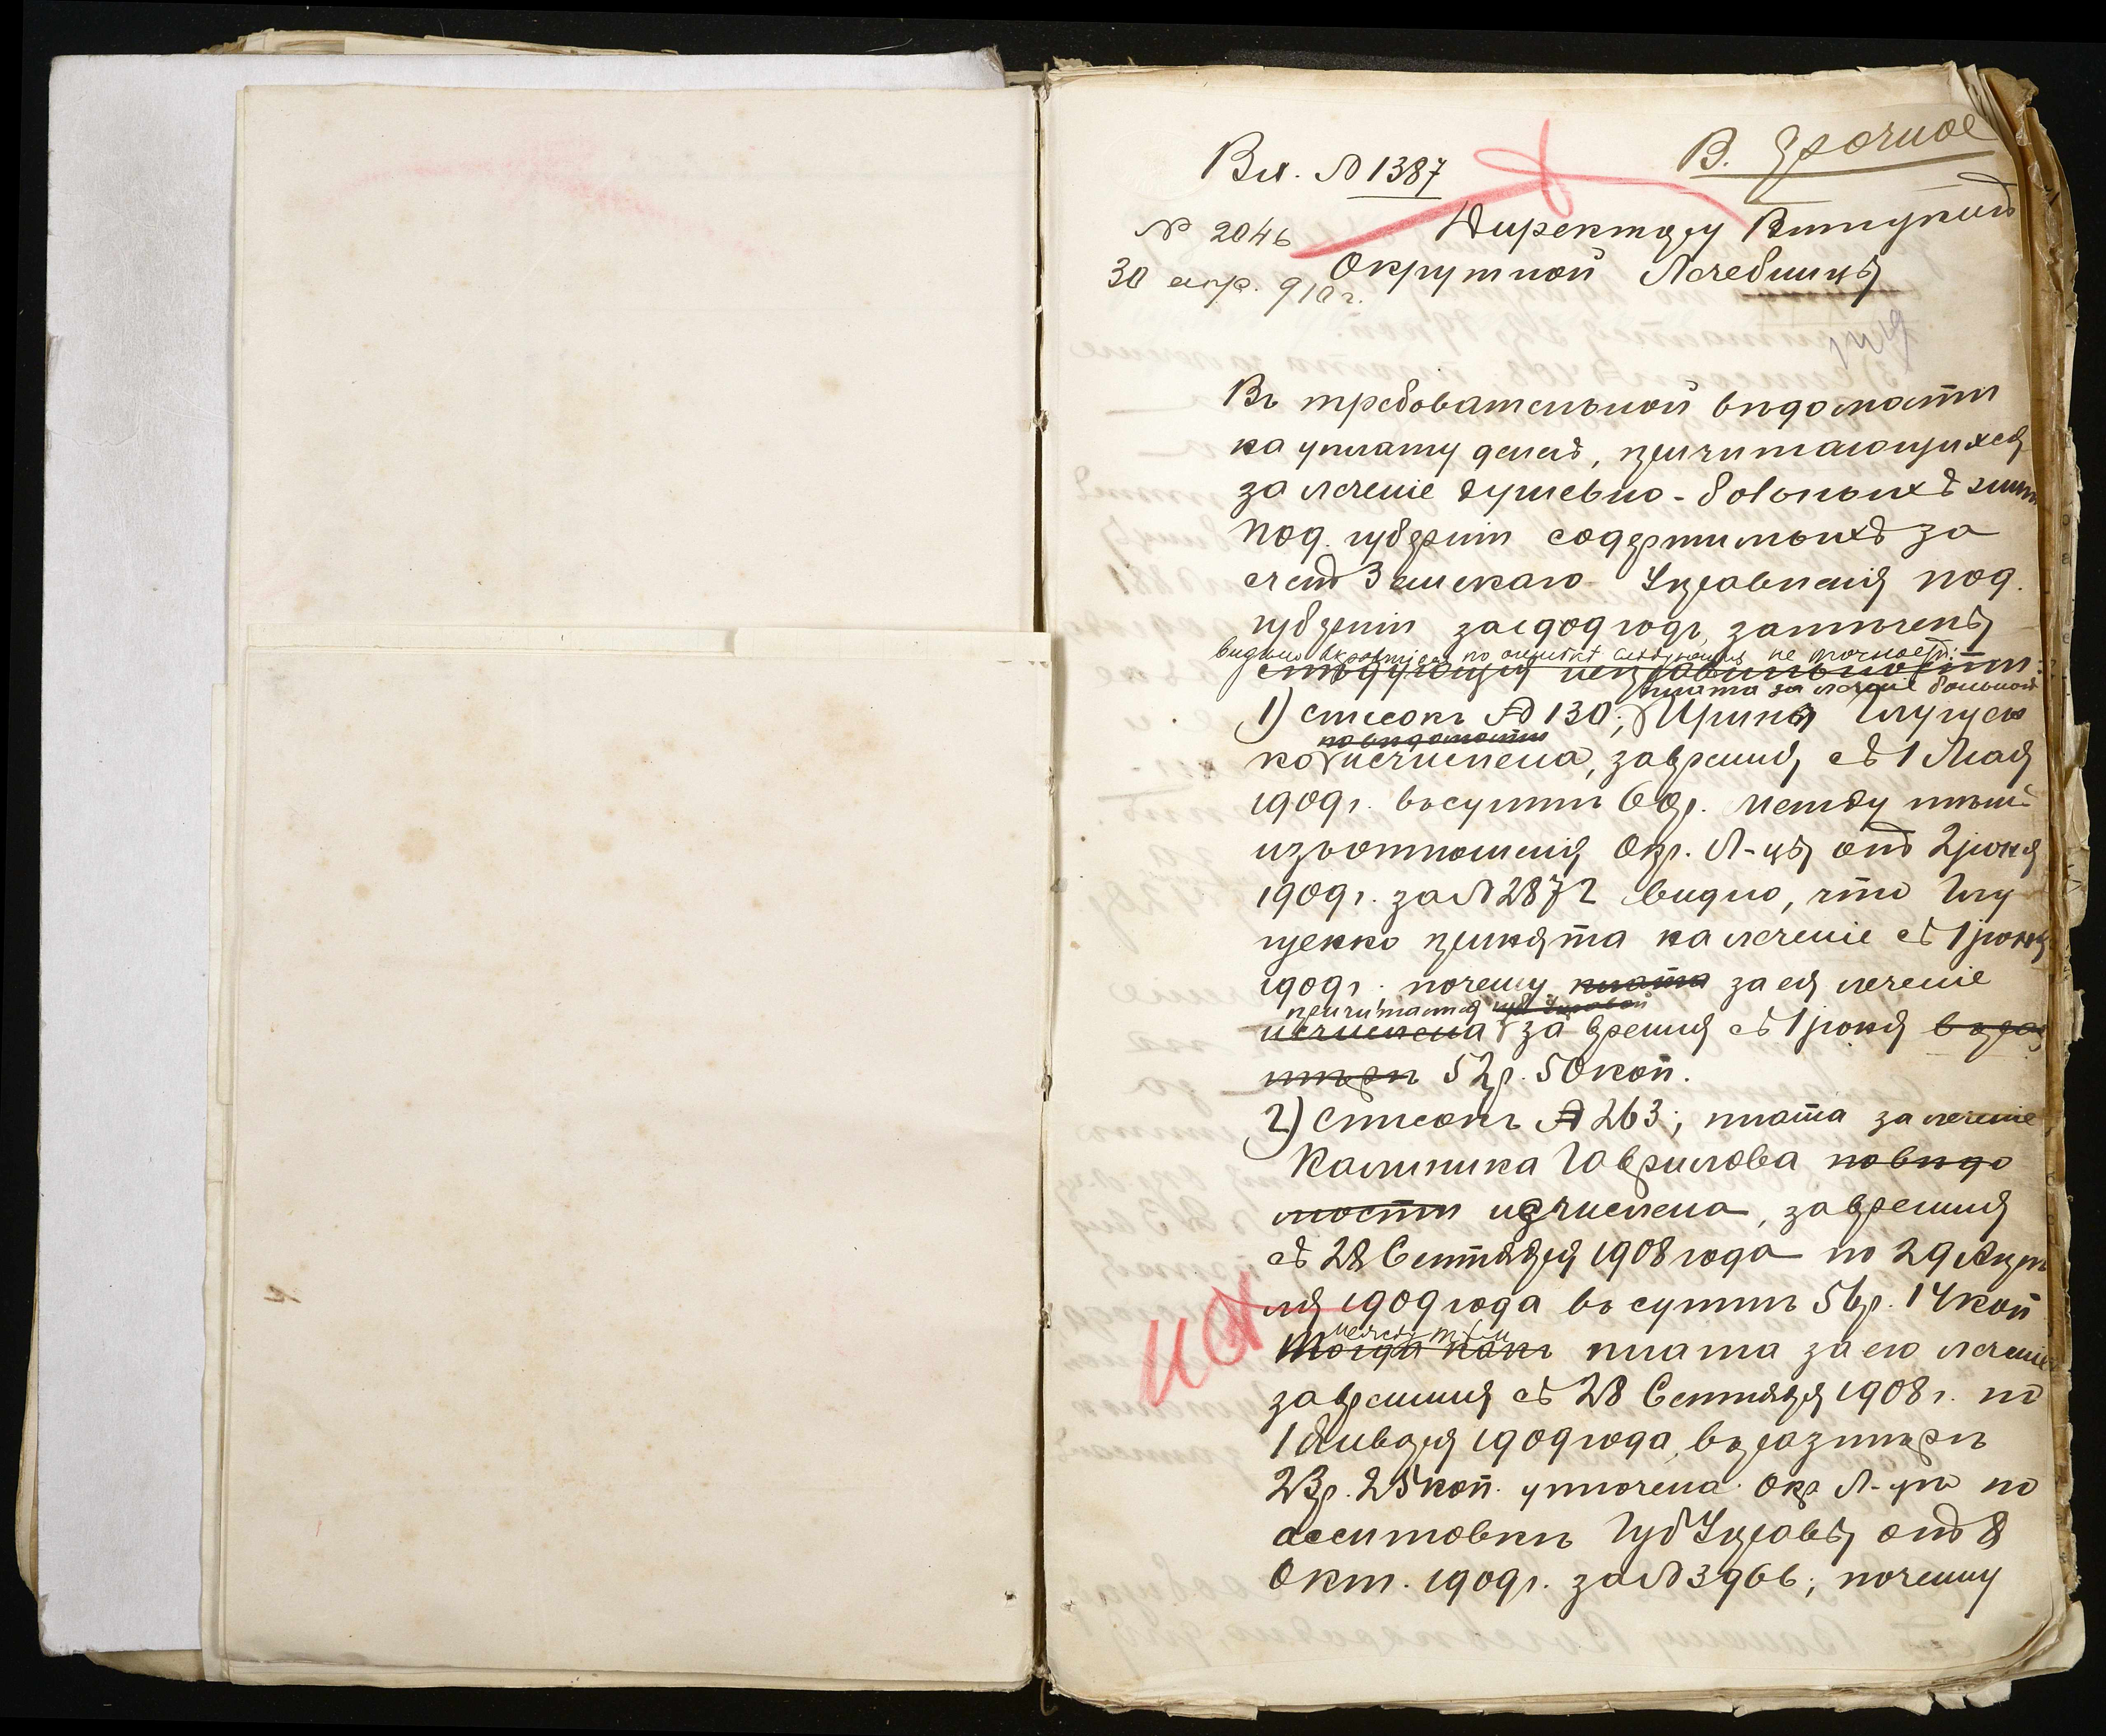 В. Срочное
Вх. № 1387
№ 2046
30 апр. 910 г.
Директору
Окружной Лечебницы
Въ требовательной вѣдомости
на уплату денегъ, причитающихся
за леченіе душевно-больныхъ
под. губерніи содержимыхъ за
счетъ Земскаго Управленія под.
губерніи за 1909 годъ, замѣчены
по ошибкѣ слѣдующія не точности:
слѣдующія неправильности:
плата за леченіе больной
1) списокъ № 130;, Ирины Глущен
по вѣдомости
ко исчислена, за время съ 1 Мая
1909 г. въ суммѣ 60 р. между тѣмъ
изъ отношенія Окр. Л-цы отъ 2 іюня
1909 г. за № 2872 видно, что Глу
щенко принята на леченіе съ 1 іюня
1909 г. почему плата за ея леченіе
причитается
исчислена за время съ 1 іюня въ раз
мѣрѣ 52 р. 50 коп.
2) Списокъ № 263; плата за леченіе
Калиника Гаврилова по вѣдо
мости исчислена, за время
съ 28 Сентября 1908 года по 29 Апрѣ
ля 1909 года въ суммѣ 56 р. 14 коп
между тѣм
тогда какъ плата за его леченіе
за время съ 28 Сентября 1908 г. по
1 Января 1909 года, въ размѣрѣ
23 р. 25 коп. уплочена Окр. Л-цѣ по
ассигновкѣ Губ Управы отъ 8
Окт. 1909 г. за № 3966; почему